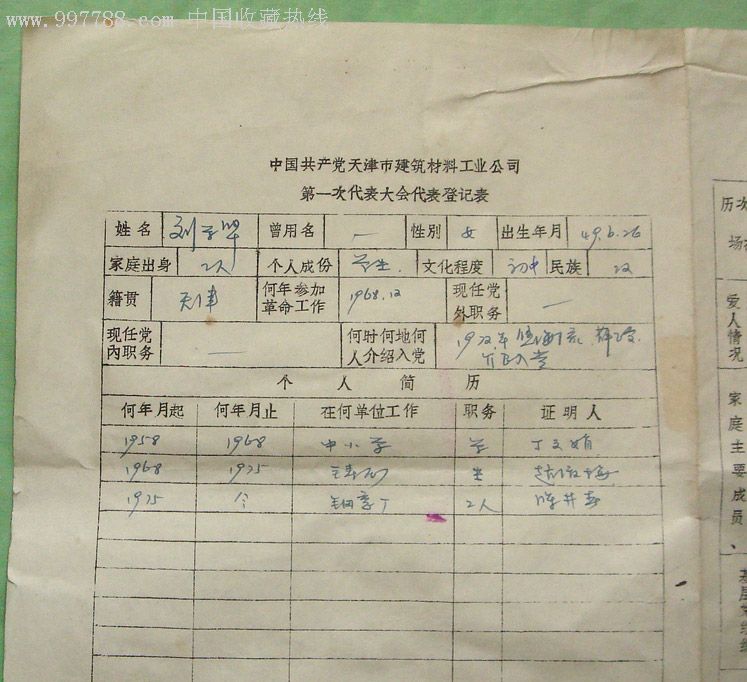 www.997788.com 中国收藏热线
中国共产党天津市建筑材料工业公司
第一次代表大会代表登记表
姓名 刘 曾用名 — 性别 女 出生年月 49.6.26
家庭出身 工人 个人成份 学生. 文化程度 初中 民族 汉
籍贯 天津 何年参加革命工作 1968.12 现任党外职务 —
现任党内职务 — 何时何地何人介绍入党 介绍入党
个人简历
何年月起 何年月止 在何单位工作 职务 证明人
1958 1968 中小学 学 丁文娟
1968 1975
1975 今 工人 陈井春
历次
场
爱人情况
家庭主要成员、
基层